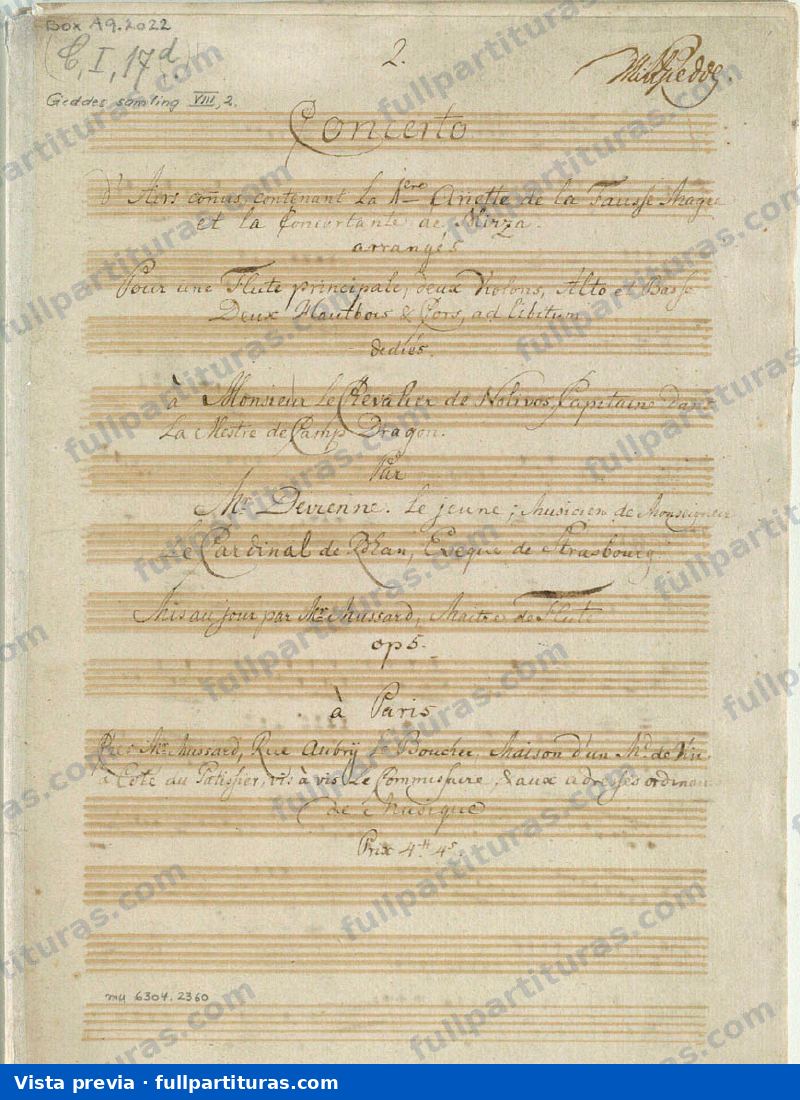 Box A9.2022
(C, I, 17d.)
2.
Geddes samling VIII, 2.
Concerto
D'Airs coñus, contenant La 1ere Ariette de la Fausse Magie
et la Concertante de Mirza.
arrangés
Pour une Flute principale, deux Violons, Alto et Basse
Deux Hautbois & Cors, ad libitum
dediés.
à Monsieur Le Chevalier de Nolivos, Capitaine
La Mestre de Camp Dragon.
Par
Mr. Devienne. Le jeune; Musicien de Monseigneur
le Cardinal de Rhan, Eveque de Strasbourg.
Mis au jour par Mr. Mussard, Maitre de Flute
op 5.
à Paris
Chés Mr. Mussard, Rue Aubry Boucher, Maison d'un Md. de Vin
à Coté du Patissier, vis à vis Le Commissaire, & aux adresses ordinair
de Musique
Prix 4tt 4s
mu 6304.2360
fullpartituras.com
Vista previa · fullpartituras.com